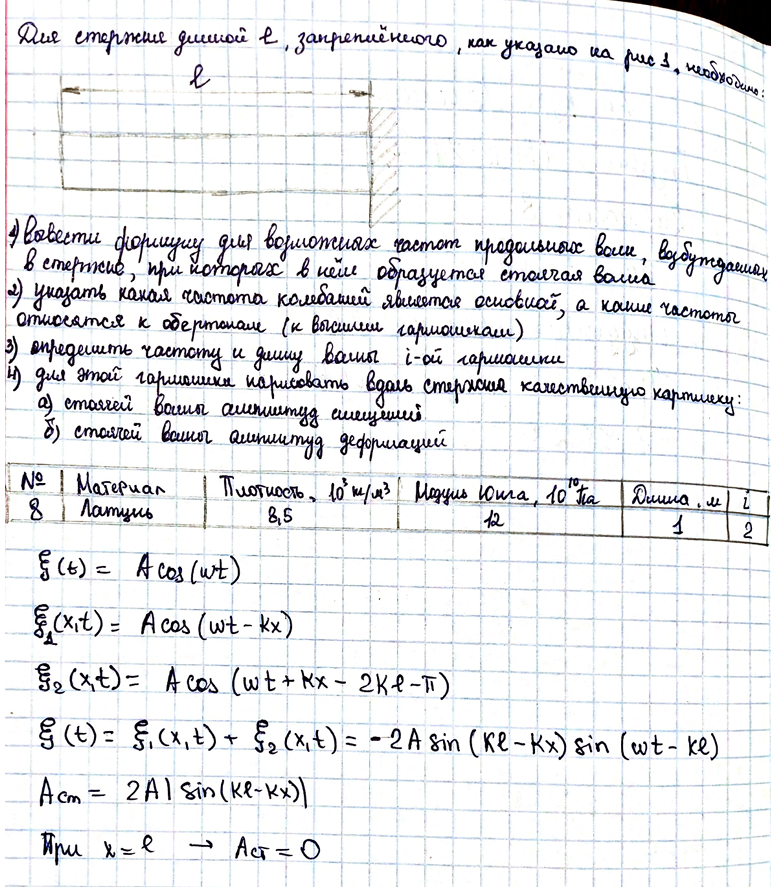 Для стержня длиной ℓ, закреплённого, как указано на рис 1, необходимо:
ℓ
1) вывести формулу для возможных частот продольных волн, возбуждаемых
в стержне, при которых в нём образуется стоячая волна
2) указать какая частота колебаний является основной, а какие частоты
относятся к обертонам (к высшим гармоникам)
3) определить частоту и длину волны i-ой гармоники
4) для этой гармоники нарисовать вдоль стержня качественную картинку:
а) стоячей волны амплитуд смещений
б) стоячей волны амплитуд деформаций
№ Материал Плотность, 10³ кг/м³ Модуль Юнга, 10¹⁰ Па Длина, м i
8 Латунь 8,5 12 1 2
ξ(t) = A cos(ωt)
ξ₁(x,t) = A cos(ωt - kx)
ξ₂(x,t) = A cos(ωt + kx - 2kℓ - π)
ξ(t) = ξ₁(x,t) + ξ₂(x,t) = -2A sin(kℓ - kx) sin(ωt - kℓ)
Aст = 2A|sin(kℓ - kx)|
При x = ℓ → Aст = 0